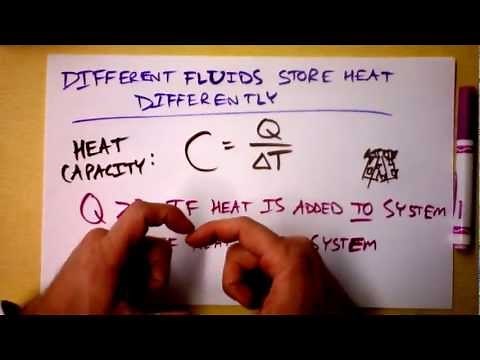 DIFFERENT FLUIDS STORE HEAT
DIFFERENTLY
HEAT
CAPACITY:
C = Q / ΔT
Q > IF HEAT IS ADDED TO SYSTEM
SYSTEM